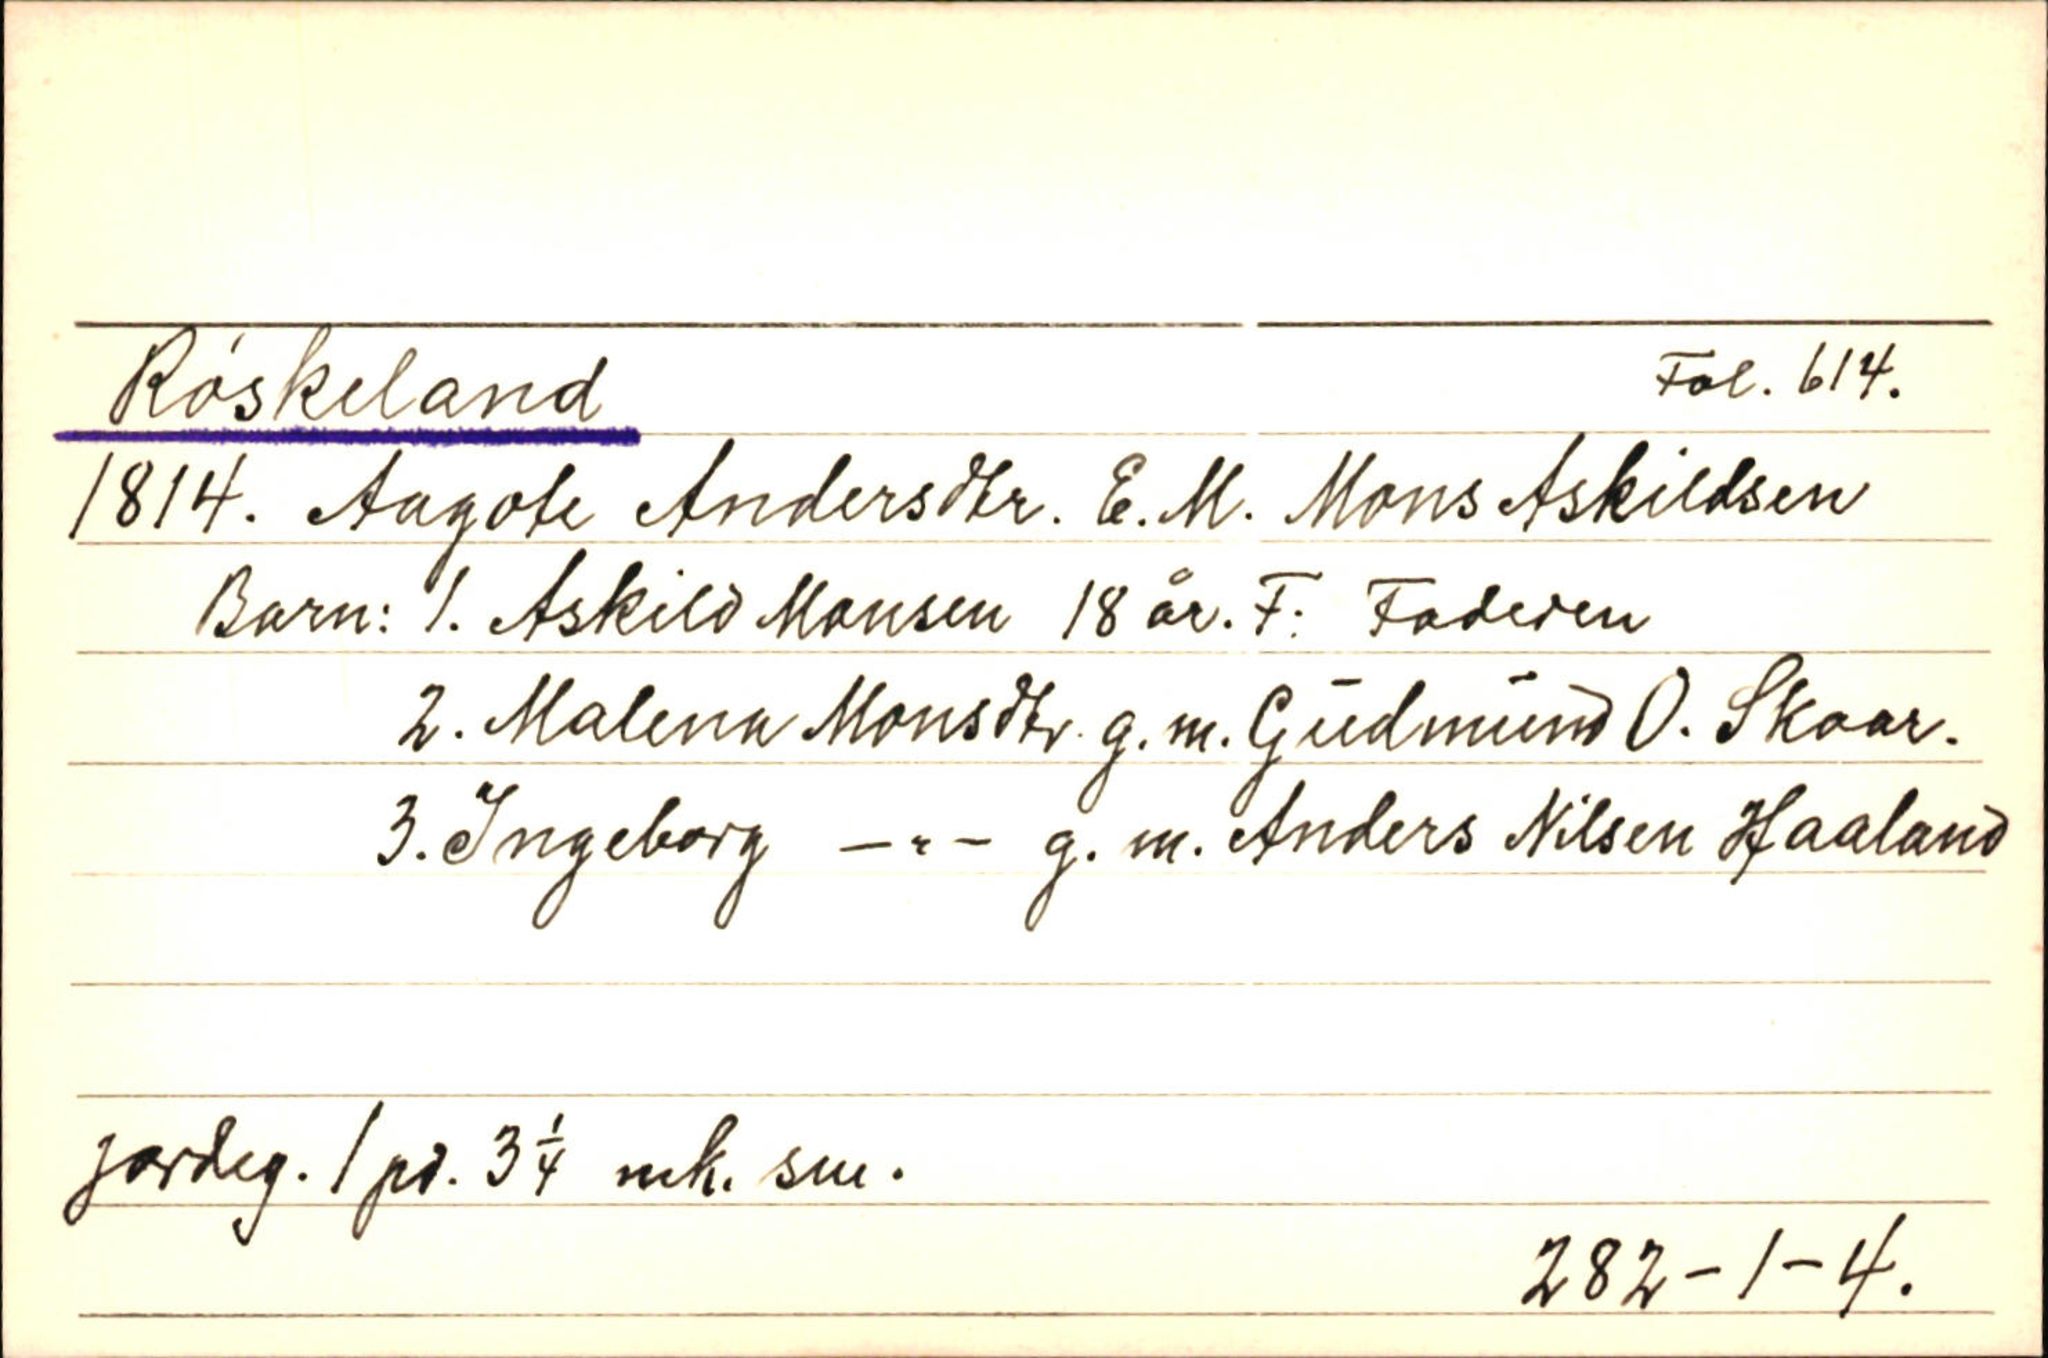 Röskeland Fol. 614.
1814. Aagote Andersdtr. E.M. Mons Askildsen
Barn: 1. Askild Monsen 18 år. F: Faderen
2. Malena Monsdtr. g.m. Gudmund O. Skaar.
3. Ingeborg —"— g.m. Anders Nilsen Haaland
jordeg. 1 pd. 3 1/4 mk. sm.
282-1-4.